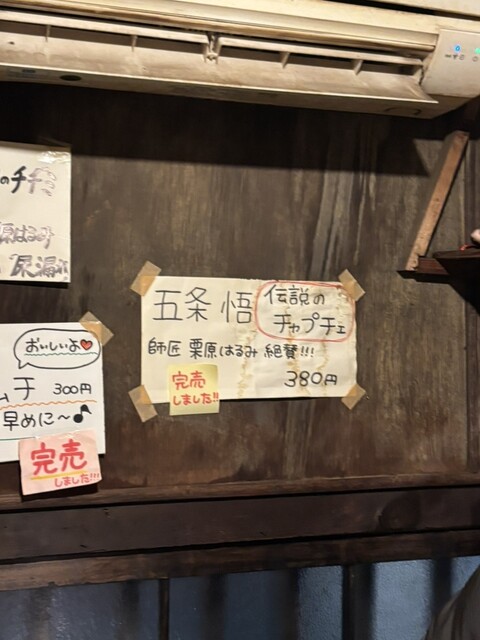 のチヂミ
原はるみ
尿漏れ
五条 悟
伝説の
チャプチェ
師匠 栗原はるみ 絶賛!!!
完売
しました!!
380円
おいしいよ♥
ムチ 300円
早めに〜♪
完売
しました!!!